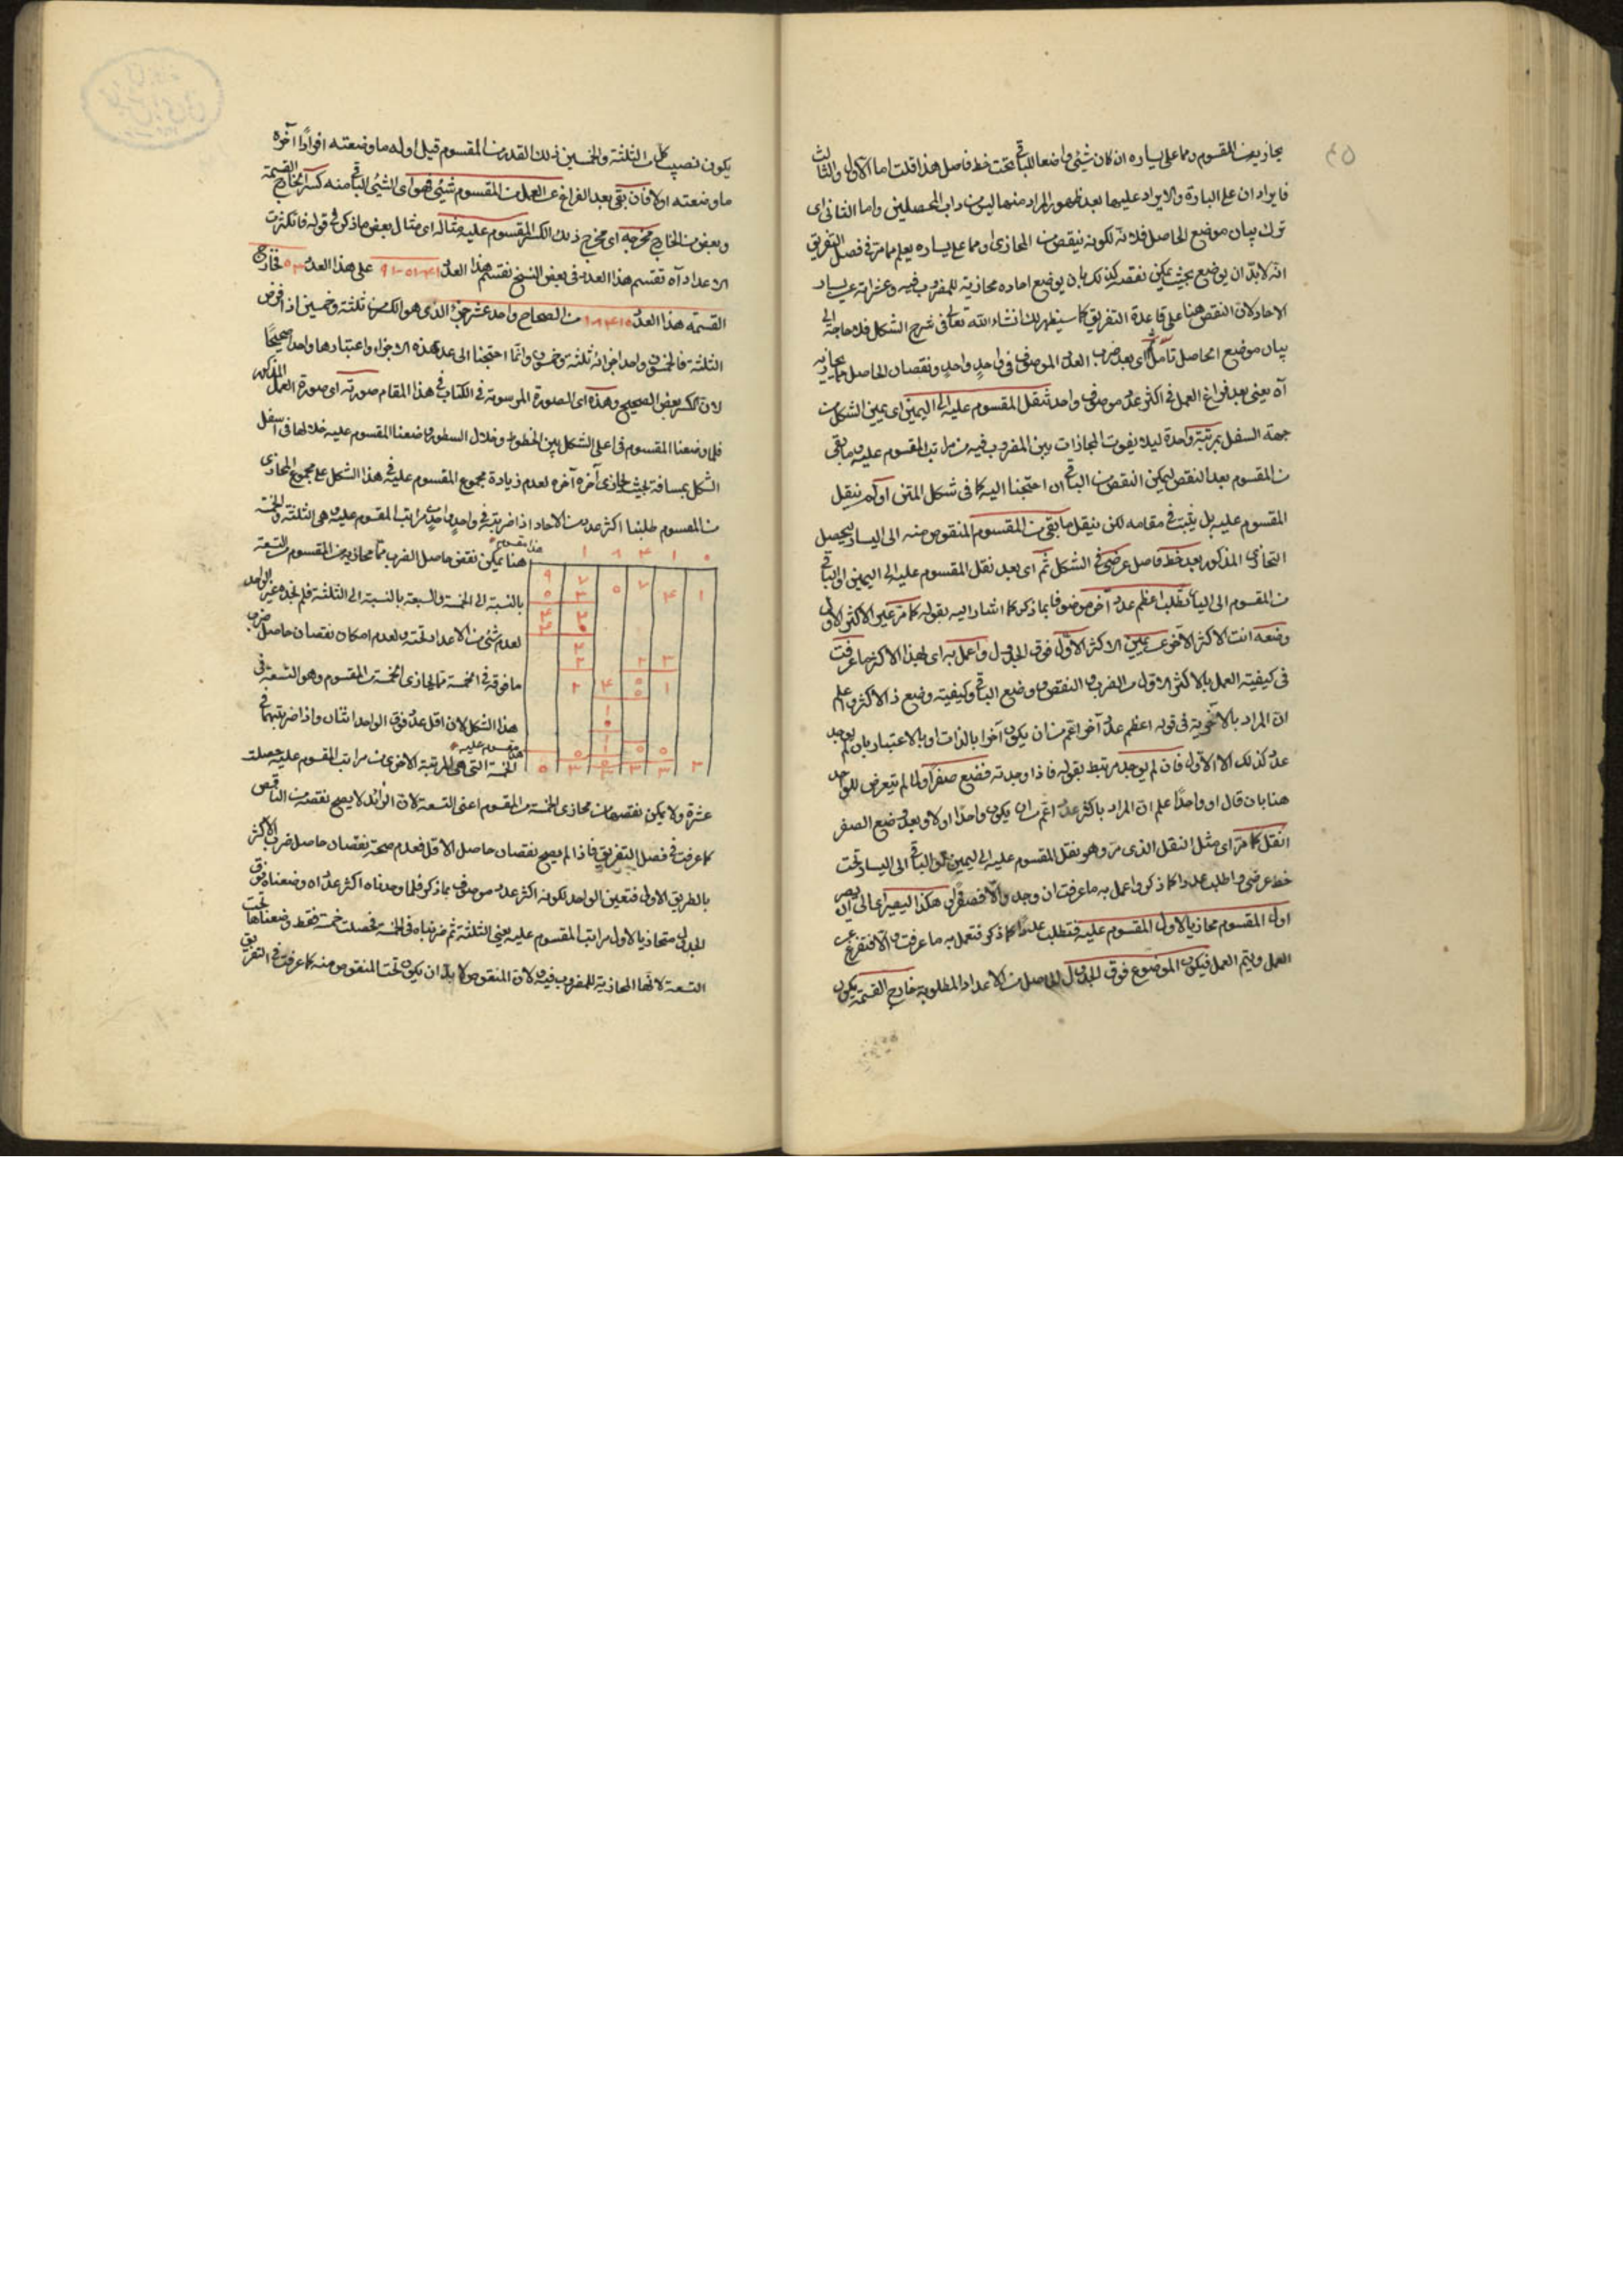 ٤٥
يحاذيه من المقسوم ومما على يساره ان كان شئ واضعا للباقى تحت خط فاصل هذا قلت اما الاول والثالث
فايرادان على البادرة والايراد عليهما بعد ظهور المراد منهما ليس من داب المحصلين واما الثانى اى
ترك بيان موضع الحاصل فلانه لكونه ينقص من المحاذى او مما على يساره يعلم مما مر فى فصل التفريق
انه لابد ان يوضع بحيث يمكن نقصه كذلك بان يوضع احاده محاذية للمضروب فيه وعشراته عن يسار
الاحاد لان النقص هنا على قاعدة التفريق كما سيظهر لك انشاء الله تعالى فى شرح الشكل فلا حاجة الى
بيان موضع الحاصل تأمل ثم اى بعد ضرب العدد الموصوف فى واحد واحد ونقصان الحاصل مما يحاذيه
آه يعنى بعد فراغ العمل فى اكثر عدد موصوف واحد تنقل المقسوم عليه الى اليمين اى يمين الشكل من
جهة السفل بمرتبة واحدة ليلا يفوت المحاذات بين المضروب فيه من مراتب المقسوم عليه وما بقى
من المقسوم بعد النقص ليمكن النقص من الباقى ان احتجنا اليه كما فى شكل المتن او لم ينقل
المقسوم عليه بل يثبت فى مقامه لكن ينقل ما بقى من المقسوم المنقوص منه الى اليسار ليحصل
التحاذى المذكور بعد خط فاصل عرضى فى الشكل ثم اى بعد نقل المقسوم عليه الى اليمين او الباقى
من المقسوم الى اليسار تطلب اعظم عدد آخر موصوفا بما ذكر كما اشار اليه بقوله كما مر عين الاكثر الاول
وضعه انت الاكثر الآخر عن يمين الاكثر الاول فوق الجدول واعمل به اى بهذا الاكثر ما عرفت
فى كيفية العمل بالاكثر الاول من الضرب والنقص ووضع الباقى وكيفيته وضع ذا الاكثر واعلم
ان المراد بالآخرية فى قوله اعظم عدد آخر اعم من ان يكون آخرا بالذات او بالاعتبار بان لم يوجد
عدد كذلك الا الاول فان لم يوجد مرتبط بقوله فاذا وجدته فضع صفرا ولما لم يتعرض للواحد
هنا بان قال او واحدا علم ان المراد باكثر عدد اعم من ان يكون واحدا اولا وبعد وضع الصفر
انقل كما مر اى مثل النقل الذى مر وهو نقل المقسوم عليه الى اليمين او الباقى الى اليسار تحت
خط عرضى واطلب عددا كما ذكر واعمل به ما عرفت ان وجد والا فصفر وهكذا ليصير اى الى ان يصير
اول المقسوم محاذيا لاول المقسوم عليه فتطلب عددا كما ذكر فتعمل به ما عرفت والا فتفرغ عن
العمل ويتم العمل فيكون الموضوع فوق الجدول الحاصل من الاعداد المطلوبة خارج القسمة يكون
يكون نصيب كل من الثلثة والخمسين ذلك القدر من المقسوم قبل اوله ما وضعته افرادا آخره
ما وضعته اولا فان بقى بعد الفراغ عن العمل من المقسوم شئ فهو اى الشئ الباقى منه كسر الخارج القسمة
وبعض من الخارج مخرجه اى مخرج ذلك الكسر المقسوم عليه مثاله اى مثال بعض ما ذكر فى قوله فان كثرت
الاعداد آه تقسيم هذا العدد فى بعض النسخ نقسم هذا العدد على هذا العدد ٥٣ فخارج
القسمة هذا العدد من الصحاح واحد عشر جزء الذى هو الكسر من ثلثة وخمسين اذا فرض
الثلثة والخمسون واحدا اجزائه ثلثة وخمسون وانما احتجنا الى عد هذه الاجزاء واعتبارها واحدا صحيحا
لان الكسر بعض الصحيح وهذه اى الصورة المرسومة فى الكتاب فى هذا المقام صورته اى صورة العمل المذكور
فلما وضعنا المقسوم فى اعلى الشكل بين الخطوط وخلال السطور واضعنا المقسوم عليه خلالها فى اسفل
الشكل بمسافة بحيث يحاذى آخره آخره لعدم زيادة مجموع المقسوم عليه فى هذا الشكل على مجموع المحاذى
من المقسوم طلبنا اكثر عدد من الاحاد اذا ضربته فى واحد واحد من مراتب المقسوم عليه وهى الثلثة والخمسة
هنا يمكن نقص حاصل الضرب مما يحاذيه من المقسوم من التسعة
بالنسبة الى الخمسة والسبعة بالنسبة الى الثلثة فلم نجده غير الواحد
لعدم شئ من الاعداد تحته ولعدم امكان نقصان حاصل ضرب
ما فوقه فى الخمسة مما يحاذى الخمسة من المقسوم وهو التسعة فى
هذا الشكل لان اقل عدد فوق الواحد اثنان واذا ضربتهما فى
الخمسة التى هى المرتبة الاخرى من مراتب المقسوم عليه حصلت
هذا مقسوم
١ ٨ ٤ ١ ٥
٩ ٧ ٥ ٧ ٤ ١
هذا مقسوم عليه
عشرة ولا يمكن نقصها من محاذى الخمسة من المقسوم اعنى التسعة لان الزائد لا يصح نقصه من الناقص
كما عرفت فى فصل التفريق فاذا لم يصح نقصان حاصل الاقل فعدم صحة نقصان حاصل ضرب الاكثر
بالطريق الاولى فتعين الواحد لكونه اكثر عدد موصوف بما ذكر فلما وجدناه اكثر عدد اه وضعناه فوق
الجدول متحاذيا لاول مراتب المقسوم عليه يعنى الثلثة ثم ضربناه فى الخمسة فحصلت خمسة فقط وضعناها تحت
التسعة لانها المحاذية للمضروب فيه ولان المنقوص لا بد ان يكون تحت المنقوص منه كما عرفت فى التفريق